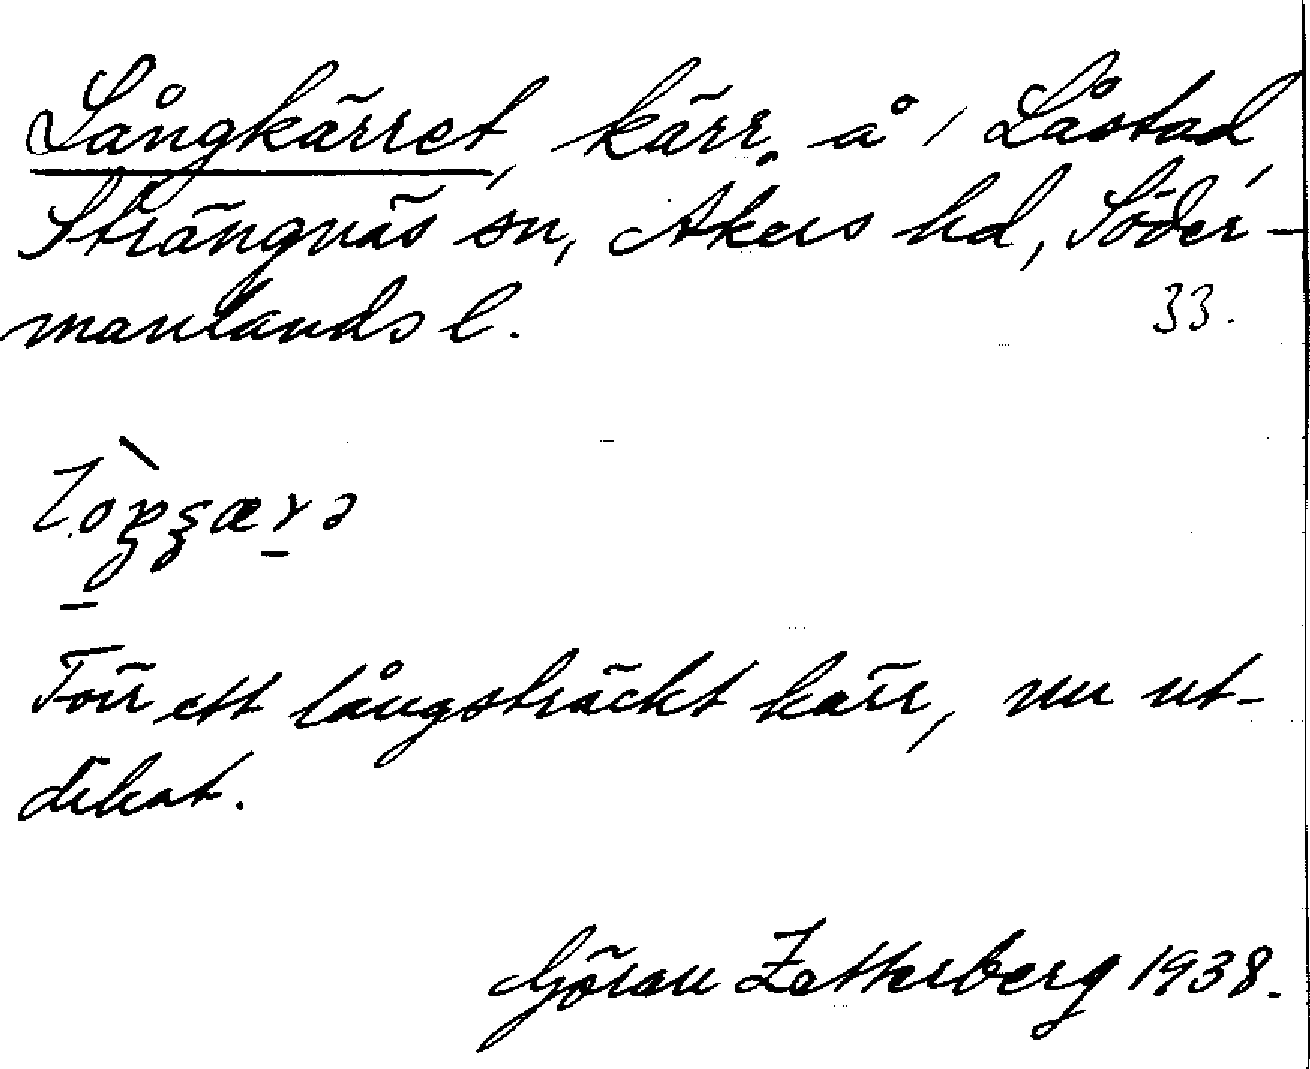 Långkärret, kärr å, Låstad,
Strängnäs sn, Åkers hd, Söder-
manlands l. 33.
Förr ett långsträckt kärr, nu ut-
dikat.
Göran Zetterberg 1938.